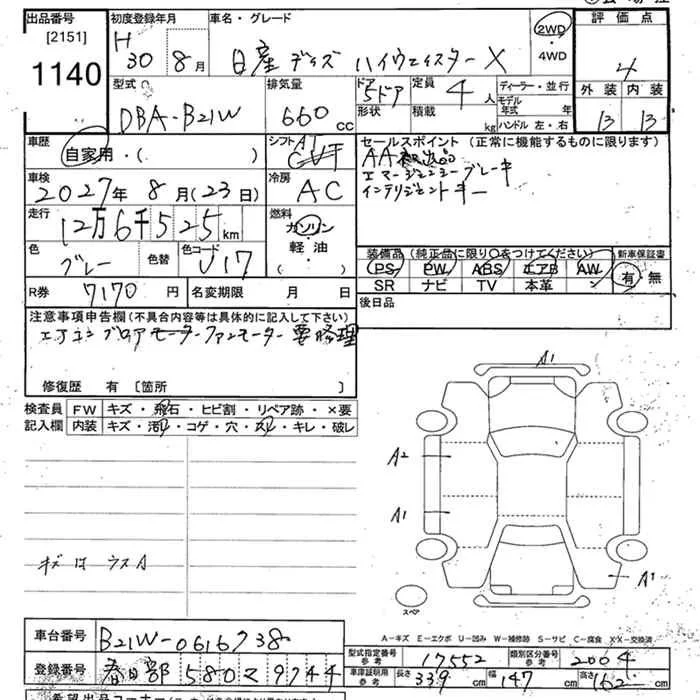 出品番号 初度登録年月 車名・グレード 評価点
[2151] H 30 8月 日産 デイズ ハイウェイスターX 2WD・4WD 4
1140
型式 排気量 ドア形状 定員 ディーラー・並行 外装 内装
DBA-B21W 660cc 5ドア 4人 積載 kg モデル年式 年 ハンドル 左・右 13 13
車歴 自家用・( ) シフト AT CVT セールスポイント (正常に機能するものに限ります)
AA
エマージェンシーブレーキ
インテリジェントキー
車検 2027年 8月(23日) 冷房 AC
走行 12万6千525km 燃料 ガソリン・軽油・( )
色 グレー 色替 色コード J17
装備品(純正品に限り○をつけてください) 新車保証書
PS PW ABS エアB AW 有・無
SR ナビ TV 本革
R券 7170円 名変期限 月 日 後日品
注意事項申告欄(不具合内容等は具体的に記入して下さい)
エアコン ブロアモーター ファンモーター 要修理
修復歴 有 〔箇所 〕
検査員記入欄 FW キズ・飛石・ヒビ割・リペア跡・×要
内装 キズ・汚れ・コゲ・穴・スレ・キレ・破レ
A1
A2
A1
キズ は ウスA
A1
スペア
A-キズ E-エクボ U-凹み W-補修跡 S-サビ C-腐食 X・XX-交換済
車台番号 B21W-0616738
型式指定番号 参考 17552 類別区分番号 参考 2004
登録番号 春日部 580 マ 9744
車庫証明用 参考 長さ 339cm 幅 147cm 高さ 162cm